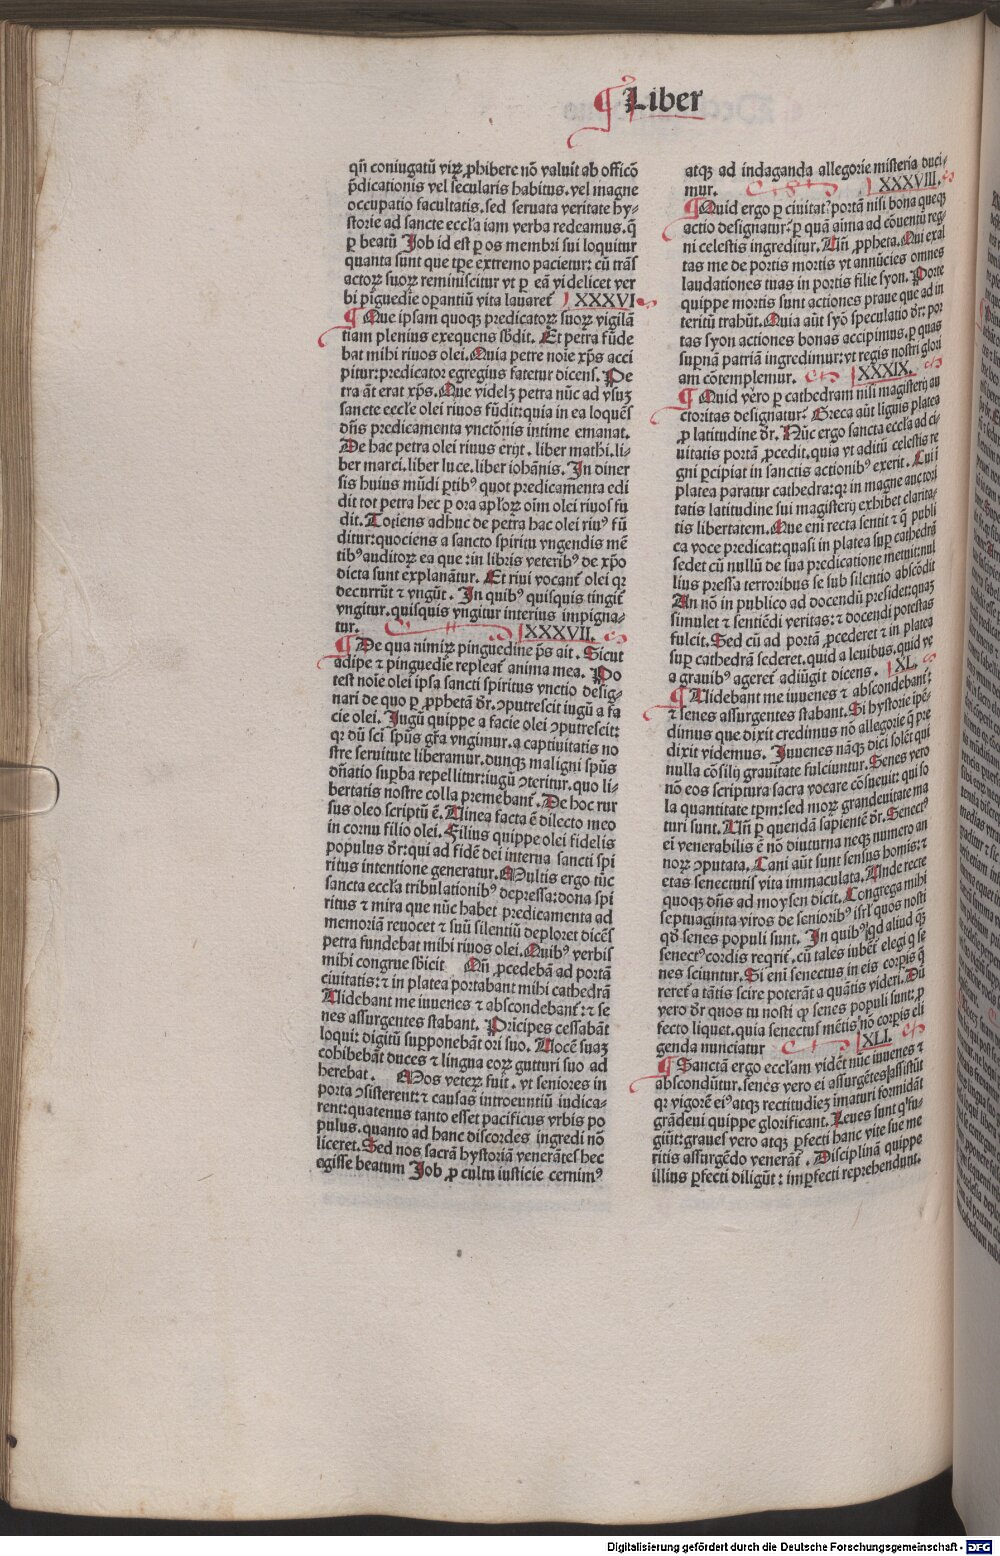 Liber
qñ coniugatū virꝝ ꝓhibere nō valuit ab officō
p̄dicationis vel secularis habitus. vel magne
occupatio facultatis. sed seruata veritate hy⸗
storie ad sancte eccl'a iam verba redeamus. q̄
ꝑ beatū Job id est ꝑ os membri sui loquitur
quanta sunt que tꝑe extremo pacietur: cū trās
actoꝝ suoꝝ reminiscitur vt ꝑ eā videlicet ver
bi pīguedie opantiū vita lauaret̄ XXXVI
Que ipsam quoqꝫ predicatoꝝ suoꝝ vigilā
tiam plenius exequens sb̄dit. Et petra fūde
bat mihi riuos olei. Quia petre noīe xp̄s acci
pitur: predicator egregius fatetur dicens. Pe
tra āt erat xp̄s. Que videlꝫ petra nūc ad vsuꝫ
sancte eccl'e olei riuos fūdit: quia in ea loquēs
dn̄s predicamenta vnctōnis intime emanat.
De hac petra olei riuus erijt. liber mathi. li⸗
ber marci. liber luce. liber iohānis. In diuer
sis huius mūdi ꝑtibꝰ quot predicamenta edi
dit tot petra hec ꝑ ora apl'oꝝ oīm olei riuos fu
dit. Totiens adhuc de petra hac olei riuꝰ fū
ditur: quociens a sancto spiritu vngendis mē
tibꝰ auditoꝝ ea que: in libris veteribꝰ de xp̄o
dicta sunt explanātur. Et riui vocant̄ olei qr
decurrūt ⁊ vngūt. In quibꝰ quisquis tingit̄
vngitur. quisquis vngitur interius impigna⸗
tur. XXXVII.
De qua nimiꝝ pinguedine p̄s ait. Sicut
adipe ⁊ pinguedīe repleat̄ anima mea. Po
test noīe olei ipsa sancti spiritus vnctio desig⸗
nari de quo ꝑ ꝓphetā dr̄. ꝯputrescit iugū a fa
cie olei. Jugū quippe a facie olei ꝯputrescit:
qr dū sci sp̄us gr̄a vngimur. a captiuitatis no
stre seruitute liberamur. dunqꝫ maligni sp̄us
dn̄atio suꝑba repellitur: iugū ꝯteritur. quo li⸗
bertatis nostre colla premebant̄. De hoc rur
sus oleo scriptū ē. Uinea facta ē dilecto meo
in cornu filio olei. Filius quippe olei fidelis
populus dr̄: qui ad fidē dei interna sancti spi
ritus intentione generatur. Multis ergo tūc
sancta eccl'a tribulationibꝰ depressa: dona spi
ritus ⁊ mira que nūc habet predicamenta ad
memoriā reuocet ⁊ suū silentiū deploret dicēs
petra fundebat mihi riuos olei. Quibꝰ verbis
mihi congrue sb̄icit Qn̄ ꝓcedebā ad portā
ciuitatis: ⁊ in platea portabant mihi cathedrā
Uidebant me iuuenes ⁊ abscondebant̄: ⁊ se
nes assurgentes stabant. Pricipes cessabāt
loqui: digitū supponebāt ori suo. Uocē suaꝫ
cohibebāt duces ⁊ lingua eoꝝ gutturi suo ad
herebat. Mos veteꝝ fuit. vt seniores in
porta ꝯsisterent: ⁊ causas introeuntiū iudica⸗
rent: quatenus tanto esset pacificus vrbis po
pulus. quanto ad hanc discordes ingredi nō
liceret. Sed nos sacrā hystoriā venerātes hec
egisse beatum Job ꝓ cultu iusticie cernimꝰ
atqꝫ ad indaganda allegorie misteria duci⸗
mur. XXXVIII.
Quid ergo ꝑ ciuitat̄ portā nisi bona queqꝫ
actio designatur? ꝑ quā aīma ad cōuentū reg⸗
ni celestis ingreditur. Un̄ ꝓpheta. Qui exal
tas me de portis mortis vt annūcies omnes
laudationes tuas in portis filie syon. Porte
quippe mortis sunt actiones praue que ad in
teritū trahūt. Quia aūt syō speculatio dr̄: por
tas syon actiones bonas accipimus. ꝑ quas
supn̄ā patriā ingredimur: vt regis nostri glori
am cōtemplemur. XXXIX.
Quid vero ꝑ cathedram nisi magisterij au
ctoritas designatur? Greca aūt liguis platea
ꝓ latitudine dr̄. Nūc ergo sancta eccl'a ad ci⸗
uitatis portā ꝓcedit. quia vt aditū celestis re
gni ꝑcipiat in sanctis actionibꝰ exerit. Cui ī
platea paratur cathedra: qr in magne auctori
tatis latitudine sui magisterij exhibet clarita⸗
tis libertatem. Que em̄ recta sentit ⁊ q̄ publi
ca voce predicat: quasi in platea suꝑ cathedrā
sedet cū nullū de sua predicatione metuit: nul
lius pressa terroribus se sub silentio abscōdit
An nō in publico ad docendū presidet: quaꝫ
simulet ⁊ sentiēdi veritas: ⁊ docendi potestas
fulcit. Sed cū ad portā ꝓcederet ⁊ in platea
suꝑ cathedrā sederet. quid a leuibus. quid ve
a grauibꝰ ageret̄ adiūgit dicens. XL.
Uidebant me iuuenes ⁊ abscondebant̄:
⁊ senes assurgentes stabant. Si hystorie ipē⸗
dimus que dixit credimus nō allegorie q̄ pre
dixit videmus. Juuenes nāqꝫ dici solēt qui
nulla cōsilij grauitate fulciuntur. Senes vero
nō eos scriptura sacra vocare cōsueuit: qui so
la quantitate tꝑm: sed moꝝ grandeuitate ma
turi sunt. Un̄ ꝑ quendā sapientē dr̄. Senectꝰ
ei venerabilis ē nō diuturna neqꝫ numero an
noꝝ ꝯputata. Cani aūt sunt sensus homīs: ⁊
etas senectutis vita immaculata. Unde recte
quoqꝫ dn̄s ad moysen dicit. Congrega mihi
septuaginta viros de senioribꝰ isrl' quos nosti
qd̄ senes populi sunt. In quibꝰ qd aliud q̄ꝫ
senectꝰ cordis reqrit̄. cū tales iubet̄ elegi q se
nes sciuntur. Si em̄ senectus in eis corpīs q̄
reret̄ a tātis scire poterāt a quātis videri. Dū
vero dr̄ quos tu nosti qꝫ senes populi sunt: ꝓ
fecto liquet. quia senectus mētis nō corpīs eli
genda nunciatur XLI.
Sanctā ergo eccl'am vidēt nūc iuuenes ⁊
abscondūtur. senes vero ei assurgētes assistūt
qr vigorē eiꝰ atqꝫ rectitudieꝫ imaturi formidāt
grādeui quippe glorificant. Leues sunt qꝰ fu⸗
giūt: graues vero atqꝫ ꝑfecti hanc vite sue me
ritis assurgēdo venerāt̄. Disciplinā quippe
illius ꝑfecti diligūt: imꝑfecti reprehendunt.
Digitalisierung gefördert durch die Deutsche Forschungsgemeinschaft - DFG